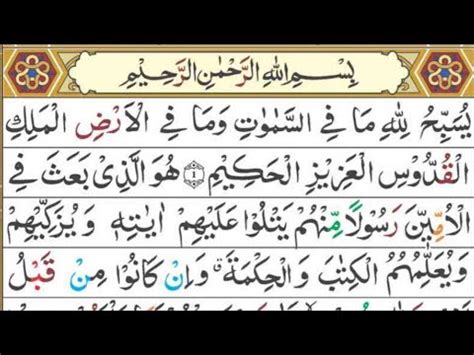 بِسْمِ اللهِ الرَّحْمٰنِ الرَّحِيْمِ
يُسَبِّحُ لِلّٰهِ مَا فِي السَّمٰوٰتِ وَمَا فِي الْاَرْضِ الْمَلِكِ
الْقُدُّوْسِ الْعَزِيْزِ الْحَكِيْمِ ۝۱ هُوَ الَّذِيْ بَعَثَ فِي
الْاُمِّيّٖنَ رَسُوْلًا مِّنْهُمْ يَتْلُوْا عَلَيْهِمْ اٰيٰتِهٖ وَيُزَكِّيْهِمْ
وَيُعَلِّمُهُمُ الْكِتٰبَ وَالْحِكْمَةَ ۗ وَاِنْ كَانُوْا مِنْ قَبْلُ